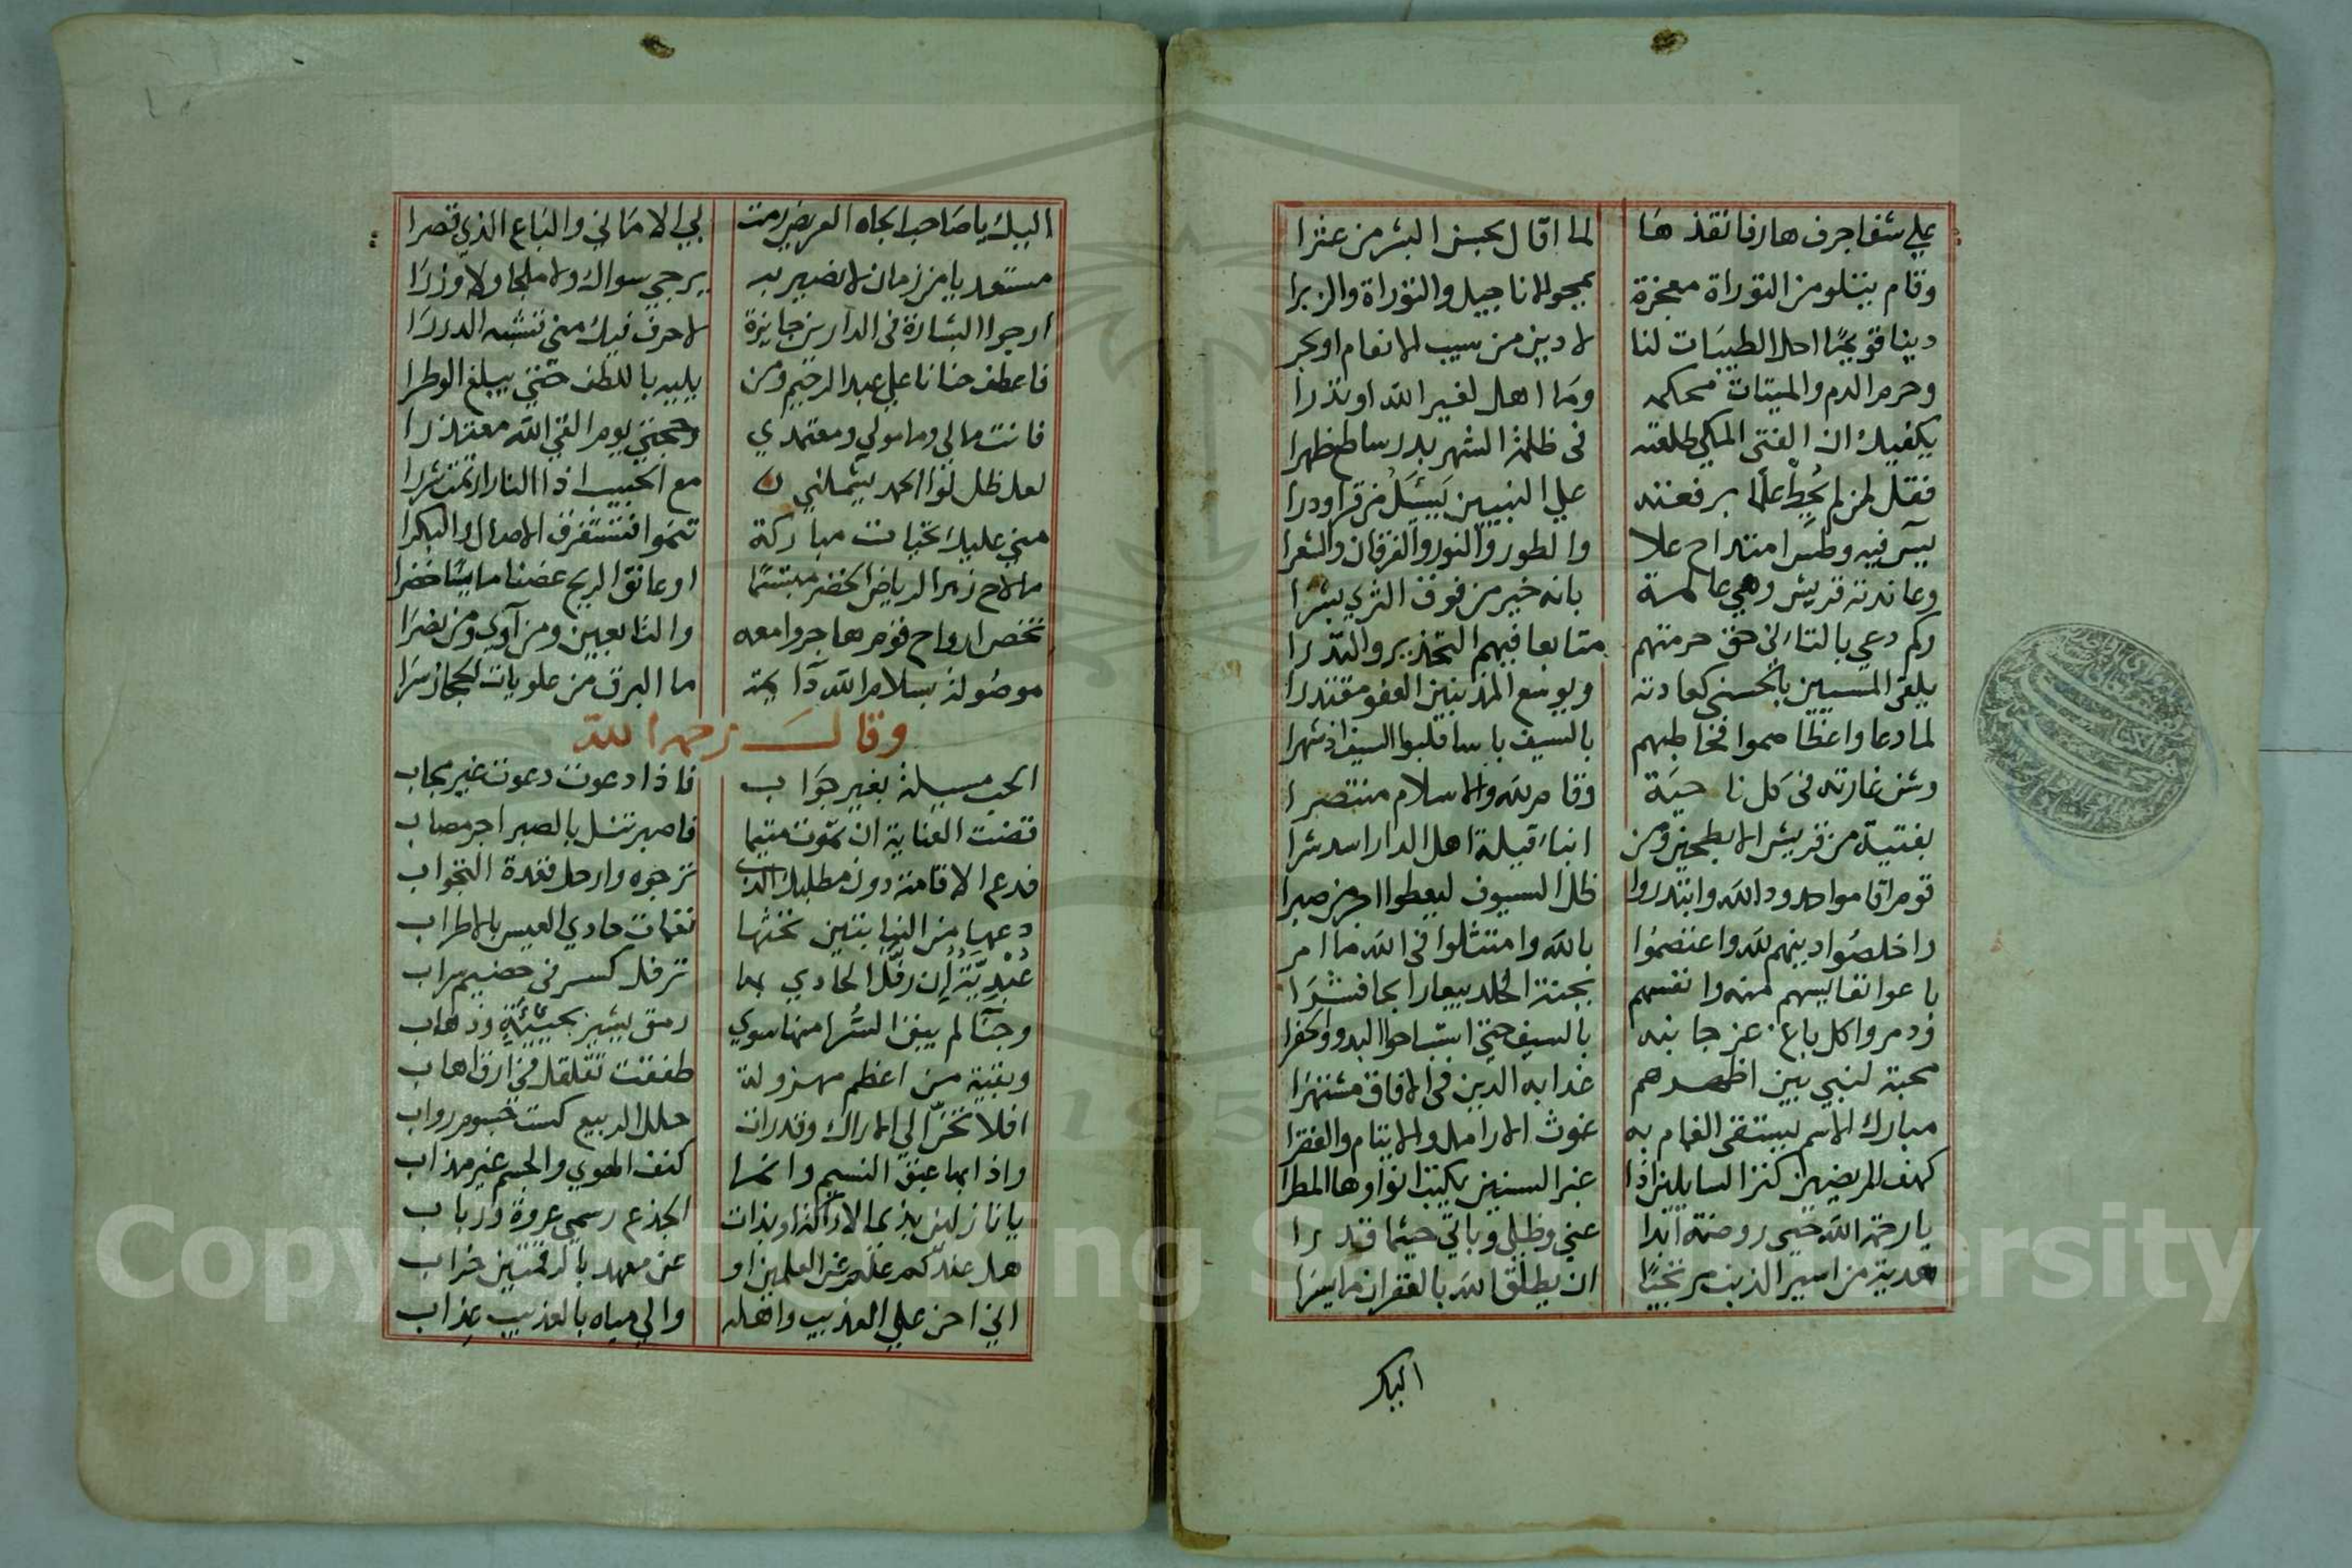 علي شفا جرف هار فانقذها لما اقال بحسن البشر من عثرا
وقام يتلو من التوراة معجزة يمحو الاناجيل والتوراة والزبرا
دينا قويما احل الطيبات لنا لا دين من سيب الانعام او بحر
وحرم الدم والميتات محكمه وما اهل لغير الله او نذرا
يكفيك ان الفتى المكي طلعته في ظلمة الشهر بدر ساطع ظهرا
فقل لمن لم يحط علما برفعته علي النبيين يسئل من قرا ودرا
يس فيه وطس امتداح علا والطور والنور والفرقان والشعرا
وعاندته قريش وهي عالمة بانه خير من فوق الثري بشرا
وكم دعي بالتاني حق حرمتهم متابعا فيهم التحذير والنذرا
يلقي المسيين بالحسني كعادته ويوسع المذنبين العفو مقتدرا
لما دعا واعظا صموا فخاطبهم بالسيف باسا فلبوا السيف اذ شهرا
وشن غارته في كل ناحية وقام لله والاسلام منتصرا
بفتية من قريش الابطحين ومن ابناء قيلة اهل الدار اسد شرا
قوم اقاموا حدود الله وابتدروا ظل السيوف ليعطوا اجر من صبرا
واخلصوا دينهم لله واعتصموا بالله وامتثلوا في الله ما امر
باعوا نفايسهم منه وانفسهم بجنة الخلد بيعا رابحا فشرا
ودمروا كل باغ عز جانبه بالسيف حتي استباحوا البدو والحضرا
محبة لنبي بين اظهرهم غدا به الدين في الافاق مشتهرا
مبارك الاسم يستسقي الغمام به غوث الارامل والايتام والفقرا
كهف المريضين كنز السايلين اذا غبر السنين يكيت انواوها المطرا
يا رحمة الله حيي روضته ابدا عني وظلي وباتي حيثما قدرا
هدية من اسير الذنب مرتجيا ان يطلق الله بالغفران ما اسرا
اليك
اليك يا صاحب الجاه العريض رمت بي الاماني والباع الذي قصرا
مستعديا من زمان لا نصير به يرجي سواك ولا ملجا ولا وزرا
ارجوا البشارة في الدارين جايزة لاحرف فيك مني تشبه الدررا
فاعطف حنانا علي عبد الرحيم ومن يليه باللطف حتي يبلغ الوطرا
فانت مالي ومامولي ومعتمدي وحجتي يوم القي الله معتذرا
لعل ظل لوا الحمد يشملني مع الحبيب اذا النار ارتمت شررا
مني عليك تحيات مباركة تنموا فتستغرق الاصال والبكرا
ما لاح زهر الرياض الخضر مبتسما او عانق الريح غصنا مايسا خضرا
تخص ارواح قوم هاجروا معه والتابعين ومن آوي ومن نصرا
موصولة بسلام الله دآيمة ما البرق من علويات الحجاز سرا
وقال رحمه الله
الحب مسيلة بغير جواب فاذا دعوت دعوت غير مجاب
قضت العناية ان تموت متيما فاصبر تنل بالصبر اجر مصاب
فدع الاقامة دون مطلبك الذي ترجوه وارحل فقدة النجواب
دعها من النيابتين تحثها نغمات حادي العيس بالاطراب
عيدية إن رفل الحادي بها ترفل كسر في حضيم سراب
وجنا لم يبق السرا منها سوي رمق يشير بحيئة وذهاب
وبقية من اعظم مهزولة طفقت تقلقل في ارق اهاب
افلا تحن الي الاراك وقد رات حلل الربيع كست جسوم رواب
واذا بها عبق النسيم وانما كنف الهوي والجسم غير مهذاب
يا نازلين بذي الاراكة او بذات الجذع رسمي عروة ورباب
هل عندكم علم عن العلمين او عن معهد بالرقمتين خراب
اني احن علي العذيب واهله والي مياه بالعذيب عذاب